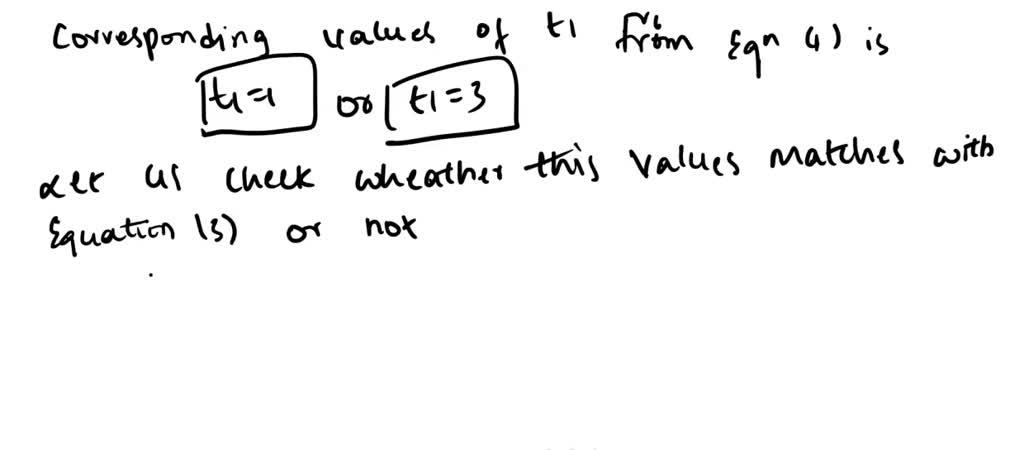 Corresponding values of t1 from Eqn (1) is
t1=1 or t1=3
Let us check wheather this values matches with
Equation (3) or not